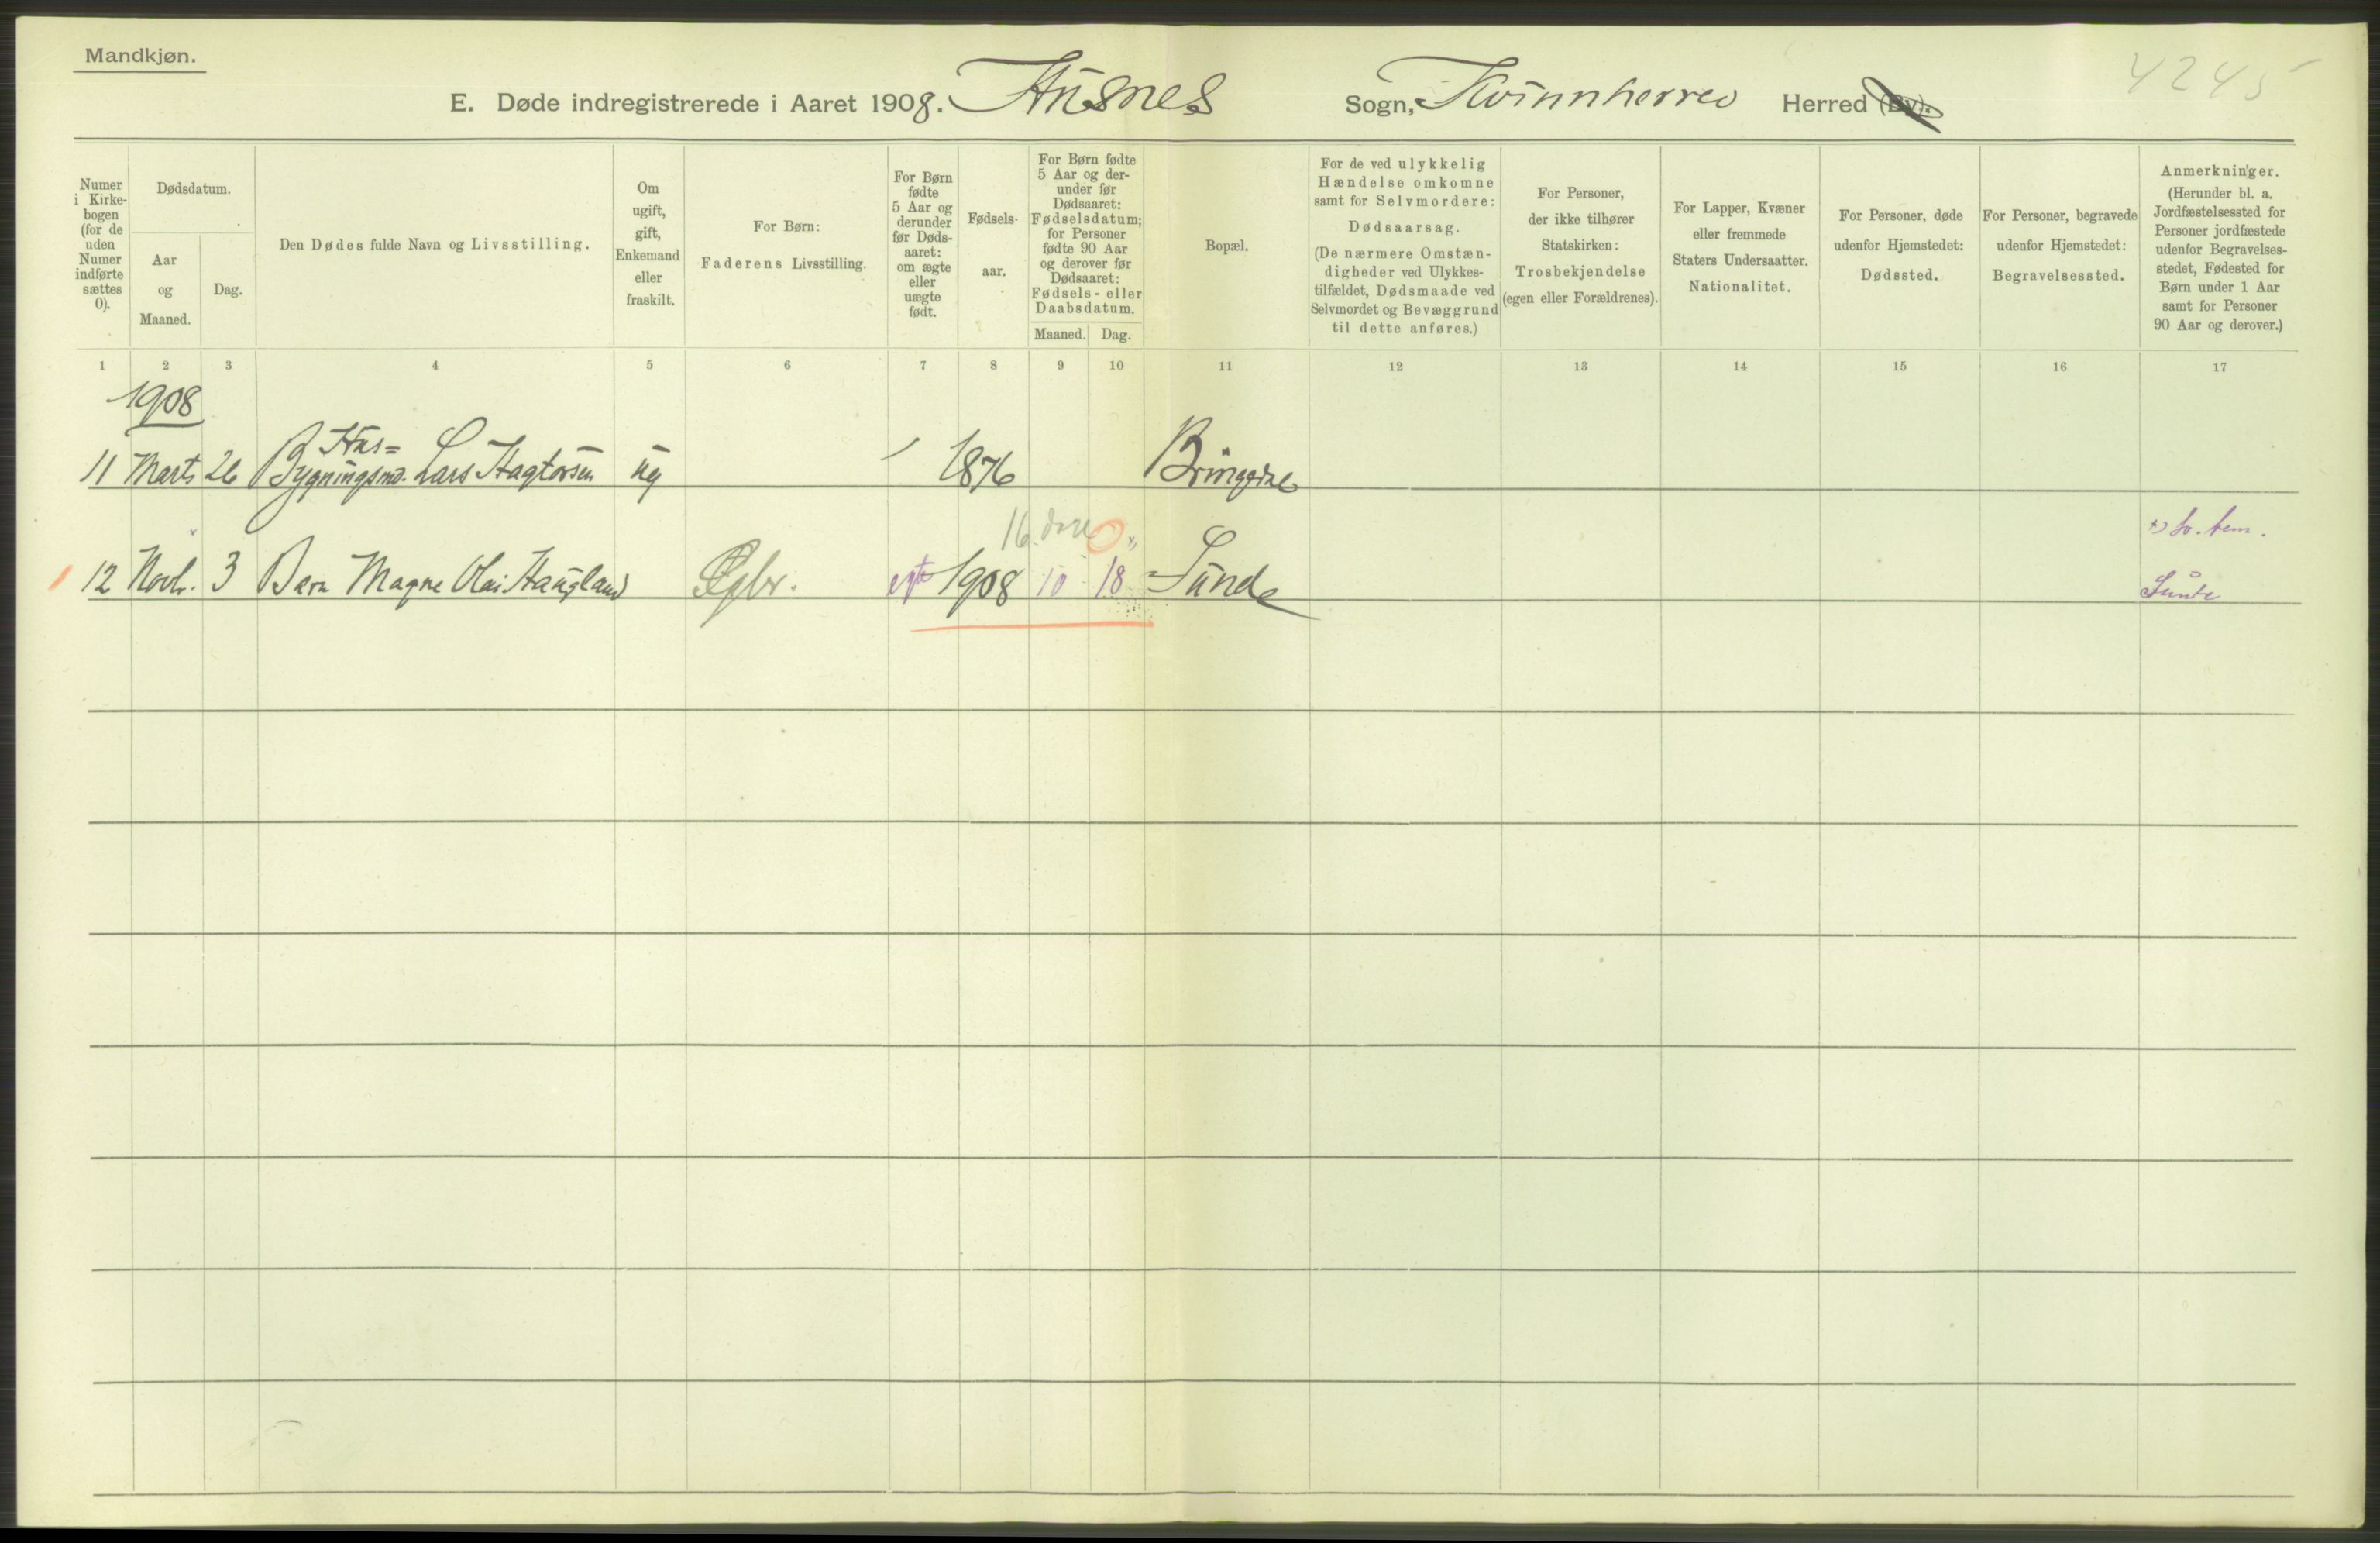 Mandkjøn.
4245
E. Døde indregistrerede i Aaret 1908. Husnes Sogn, Kvinnherred Herred (By).
Numer
i Kirke-
bogen
(for de
uden
Numer
indførte
sættes
0).
Dødsdatum.
Aar
og
Maaned.
Dag.
Den Dødes fulde Navn og Livsstilling.
Om
ugift,
gift,
Enkemand
eller
fraskilt.
For Børn:
Faderens Livsstilling.
For Børn
fødte
5 Aar og
derunder
før Døds-
aaret:
om ægte
eller
uægte
født.
Fødsels-
aar.
For Børn fødte
5 Aar og der-
under før
Dødsaaret:
Fødselsdatum;
for Personer
fødte 90 Aar
og derover før
Dødsaaret:
Fødsels- eller
Daabsdatum.
Maaned. Dag.
Bopæl.
For de ved ulykkelig
Hændelse omkomne
samt for Selvmordere:
Dødsaarsag.
(De nærmere Omstæn-
digheder ved Ulykkes-
tilfældet, Dødsmaade ved
Selvmordet og Bevæggrund
til dette anføres.)
For Personer,
der ikke tilhører
Statskirken:
Trosbekjendelse
(egen eller Forældrenes).
For Lapper, Kvæner
eller fremmede
Staters Undersaatter.
Nationalitet.
For Personer, døde
udenfor Hjemstedet:
Dødssted.
For Personer, begravede
udenfor Hjemstedet:
Begravelsessted.
Anmerkninger.
(Herunder bl. a.
Jordfæstelsessted for
Personer jordfæstede
udenfor Begravelses-
stedet, Fødested for
Børn under 1 Aar
samt for Personer
90 Aar og derover.)
1 2 3 4 5 6 7 8 9 10 11 12 13 14 15 16 17
1908
Hus=
11 Marts 26 Bygningsmd. Lars Hagtorsen ug 1876
16
12 Novb. 3 Barn Magne Olai Haugland Ggbr. egt 1908 10 18 Sunde
Sunde